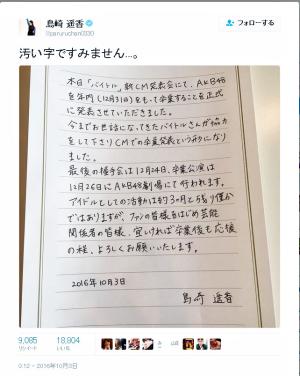 島崎 遥香
@paruruchan0330
フォローする
汚い字ですみません...。
本日「バイトル」新CM発表会にて、AKB48
を年内(12月31日)をもって卒業することを正式
に発表させていただきました。
今までお世話になってきたバイトルさんが協力
をして下さりCMでの卒業発表という形になり
ました。
最後の握手会は12月24日、卒業公演は
12月26日にAKB48劇場にて行われます。
アイドルとしての活動は約3ヶ月と残り僅か
ではありますが、ファンの皆様をはじめ芸能
関係者の皆様、宜しければ卒業後も応援
の程、よろしくお願いいたします。
2016年10月3日
島崎 遥香
9,085
リツイート
18,804
いいね
0:12 - 2016年10月3日